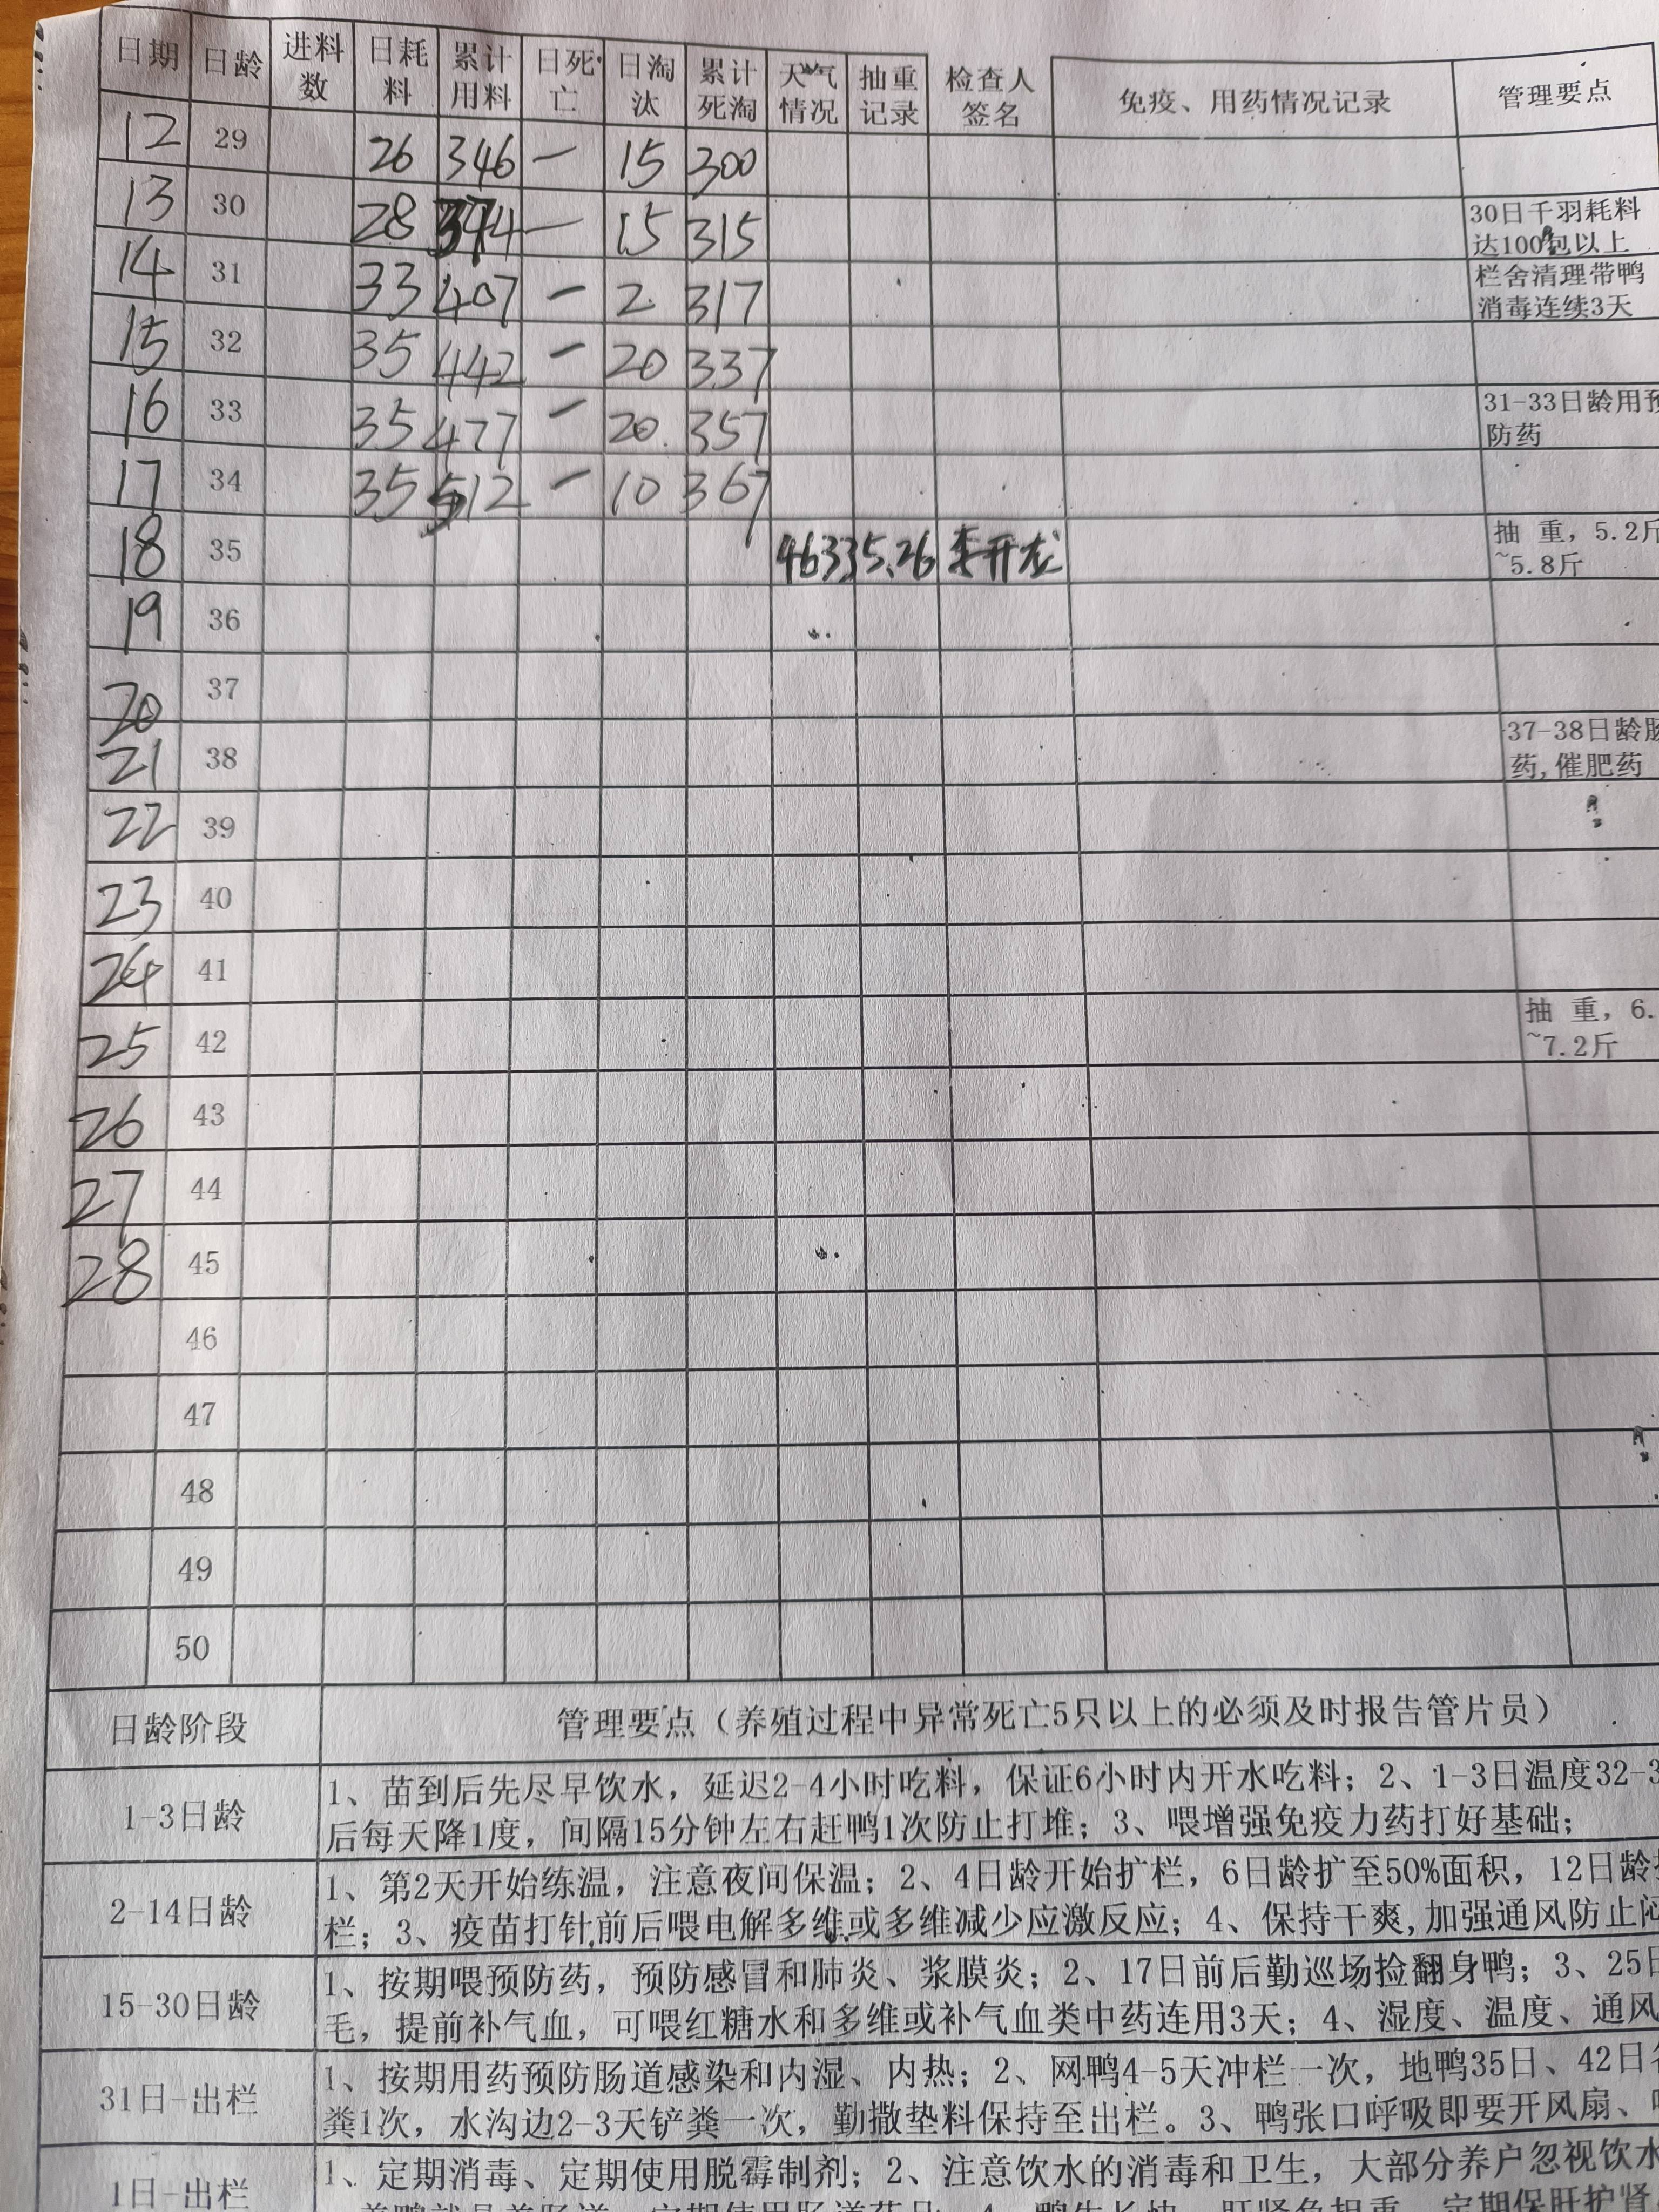 日期 日龄 进料数 日耗料 累计用料 日死亡 日淘汰 累计死淘 天气情况 抽重记录 检查人签名 免疫、用药情况记录 管理要点
12 29 26 346 — 15 300
13 30 28 374 — 15 315 30日千羽耗料达100包以上
14 31 33 407 — 2 317 栏舍清理带鸭消毒连续3天
15 32 35 442 — 20 337
16 33 35 477 — 20 357 31-33日龄用预防药
17 34 35 512 — 10 367
18 35 4633 5.26 李开龙 抽 重，5.2斤~5.8斤
19 36
20 37
21 38 37-38日龄肠药,催肥药
22 39
23 40
24 41
25 42 抽 重，6.~7.2斤
26 43
27 44
28 45
46
47
48
49
50
日龄阶段 管理要点（养殖过程中异常死亡5只以上的必须及时报告管片员）
1-3日龄 1、苗到后先尽早饮水，延迟2-4小时吃料，保证6小时内开水吃料；2、1-3日温度32-3
后每天降1度，间隔15分钟左右赶鸭1次防止打堆；3、喂增强免疫力药打好基础；
2-14日龄 1、第2天开始练温，注意夜间保温；2、4日龄开始扩栏，6日龄扩至50%面积，12日龄
栏；3、疫苗打针前后喂电解多维或多维减少应激反应；4、保持干爽,加强通风防止闷
15-30日龄 1、按期喂预防药，预防感冒和肺炎、浆膜炎；2、17日前后勤巡场捡翻身鸭；3、25日
毛，提前补气血，可喂红糖水和多维或补气血类中药连用3天；4、湿度、温度、通风
31日-出栏 1、按期用药预防肠道感染和内湿、内热；2、网鸭4-5天冲栏一次，地鸭35日、42日各
粪1次，水沟边2-3天铲粪一次，勤撒垫料保持至出栏。3、鸭张口呼吸即要开风扇、
1日-出栏 1、定期消毒、定期使用脱霉制剂；2、注意饮水的消毒和卫生，大部分养户忽视饮水